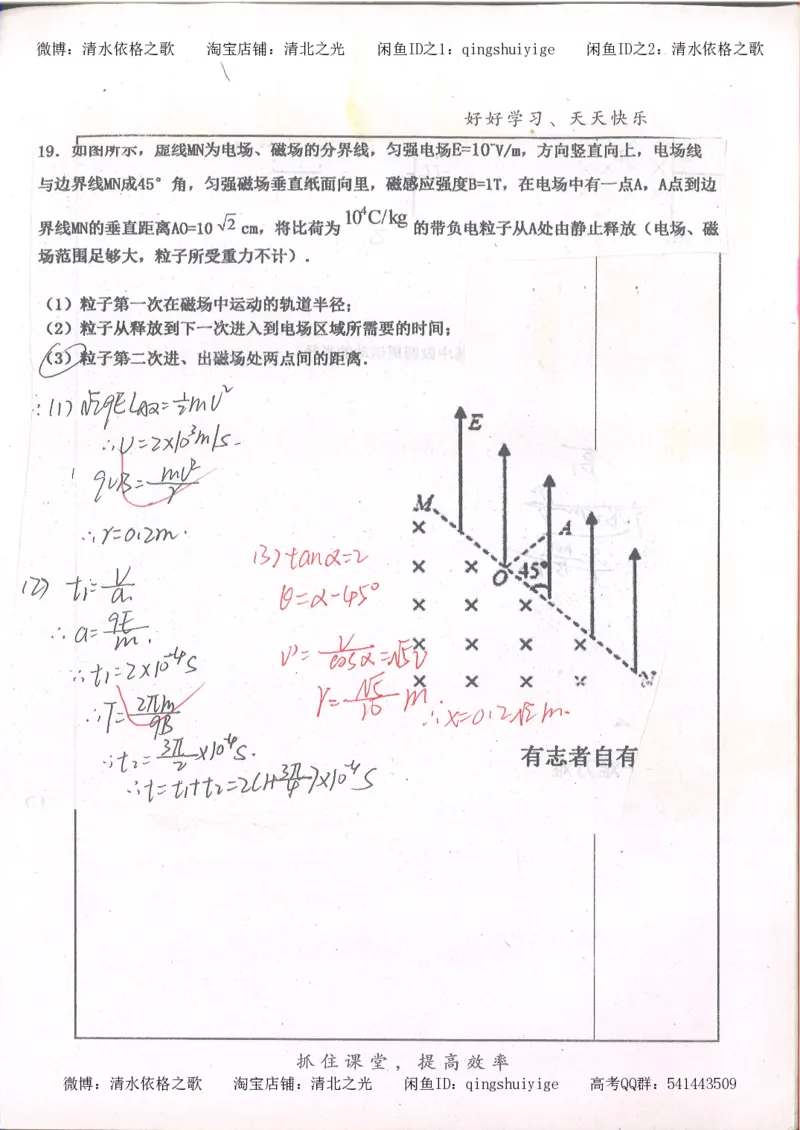 微博：清水依格之歌 淘宝店铺：清北之光 闲鱼ID之1：qingshuiyige 闲鱼ID之2：清水依格之歌
好好学习、天天快乐
19. 如图所示，虚线MN为电场、磁场的分界线，匀强电场E=10 V/m，方向竖直向上，电场线
与边界线MN成45°角，匀强磁场垂直纸面向里，磁感应强度B=1T，在电场中有一点A，A点到边
界线MN的垂直距离AO=10√2cm，将比荷为10⁴C/kg的带负电粒子从A处由静止释放（电场、磁
场范围足够大，粒子所受重力不计）.
（1）粒子第一次在磁场中运动的轨道半径；
（2）粒子从释放到下一次进入到电场区域所需要的时间；
（3）粒子第二次进、出磁场处两点间的距离.
∴(1) √2qELAO=½mv²
∴v=2×10³m/s.
qvB=mv²/r
∴r=0.2m.
(2) t₁=v/a
∴a=qE/m.
∴t₁=2×10⁻⁴s
∴T=2πm/qB
∴t₂=3π/2×10⁻⁴s.
∴t=t₁+t₂=2(1+3π/4)×10⁻⁴s
(3) tanα=2
θ=α-45°
v'=v/cosα=√5v
r=√5/10 m
∴x=0.2√2m.
E
M
A
O
45°
N
有志者自有
抓住课堂，提高效率
微博：清水依格之歌 淘宝店铺：清北之光 闲鱼ID：qingshuiyige 高考QQ群：541443509